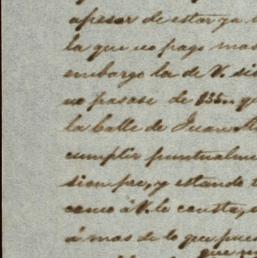 apesar de estar ya
la que no pago mas
embargo la de V. si
no pasase de 135..
la Calle de Juanelo
cumplir puntualme
siempre, y estando
como á V. le consta,
á mas de lo que pue
que